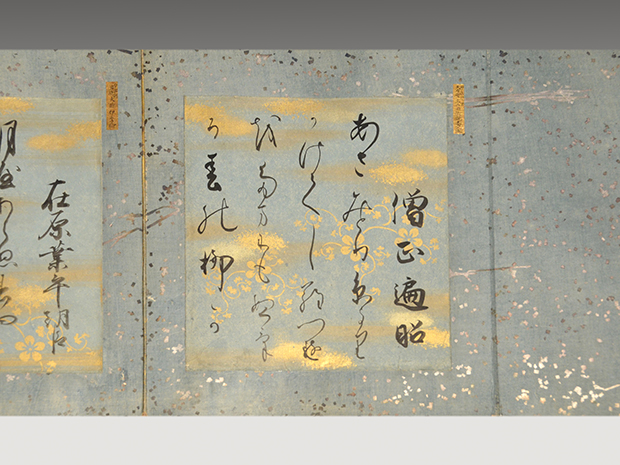 僧正遍昭
あさみとりいとより
かけてしらつゆ
をたまにもぬけ
る春の柳か
在原業平朝臣
月やあらぬ春や